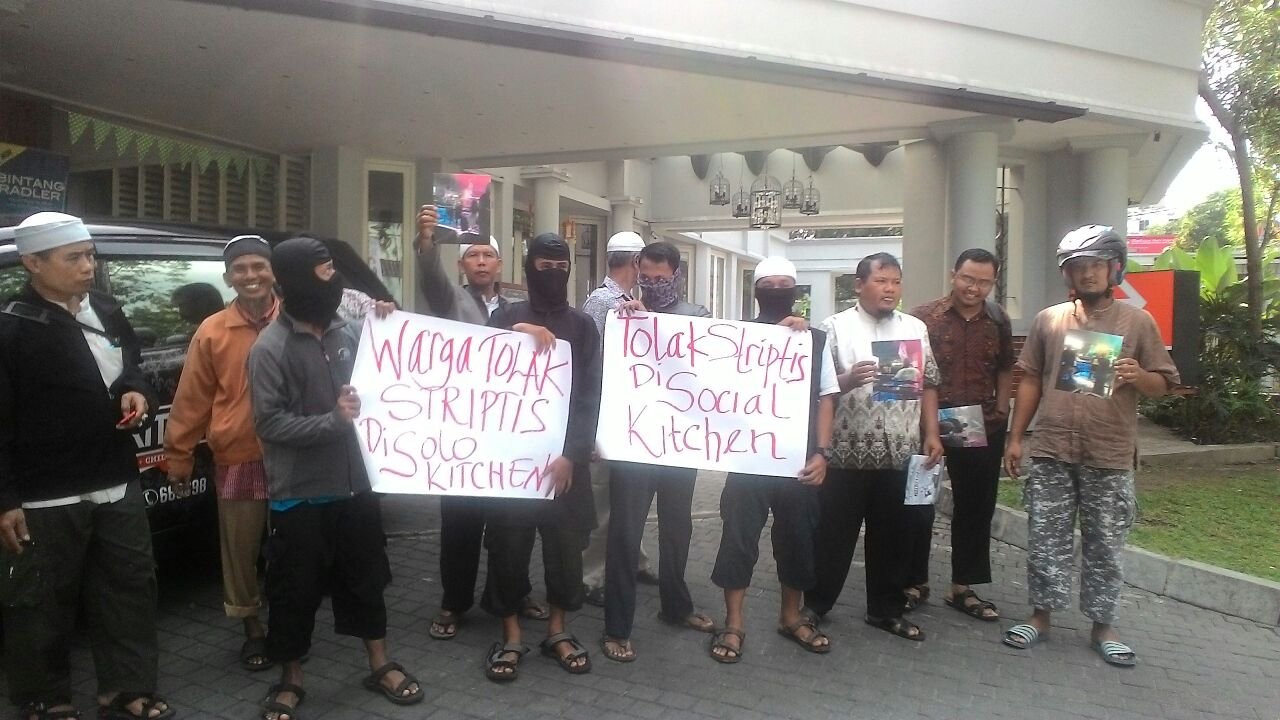 BINTANG
RADLER
Warga TOLAK
STRIPTIS
Di SOLO
KITCHEN
Tolak Striptis
Di Social
Kitchen